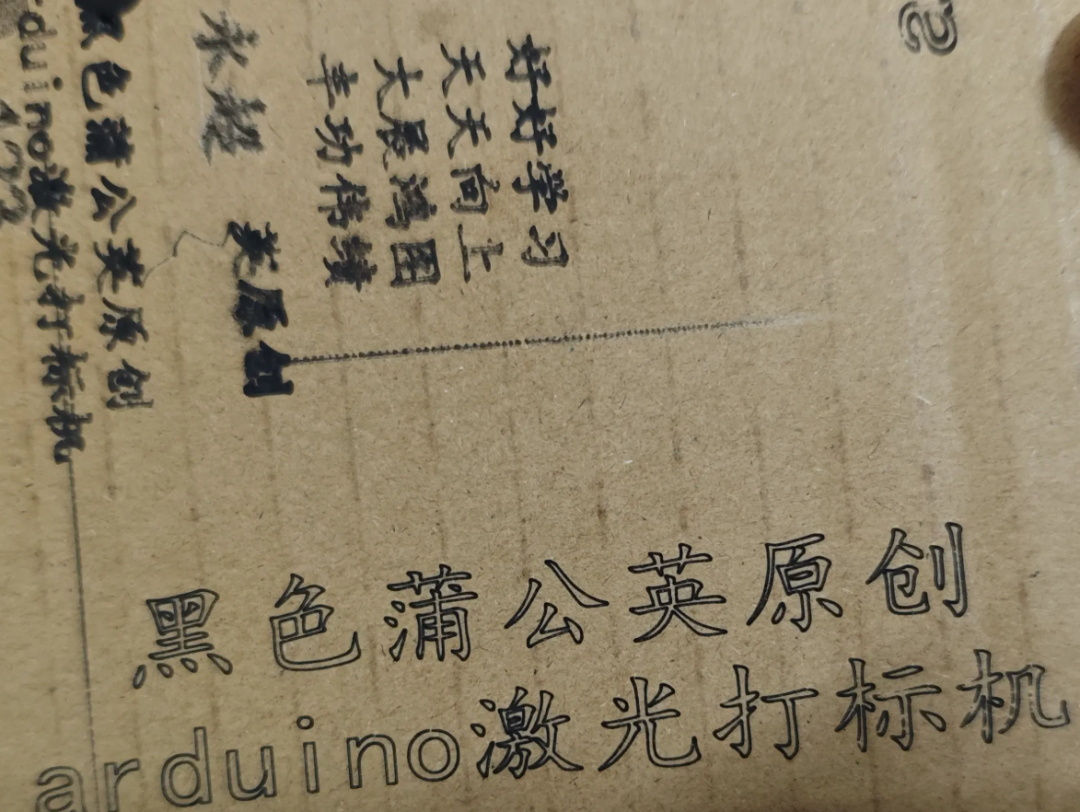 好好学习
天天向上
大展鸿图
丰功伟绩
永超
英原创
黑色蒲公英原创
arduino激光打标机
123
2
黑色蒲公英原创
arduino激光打标机